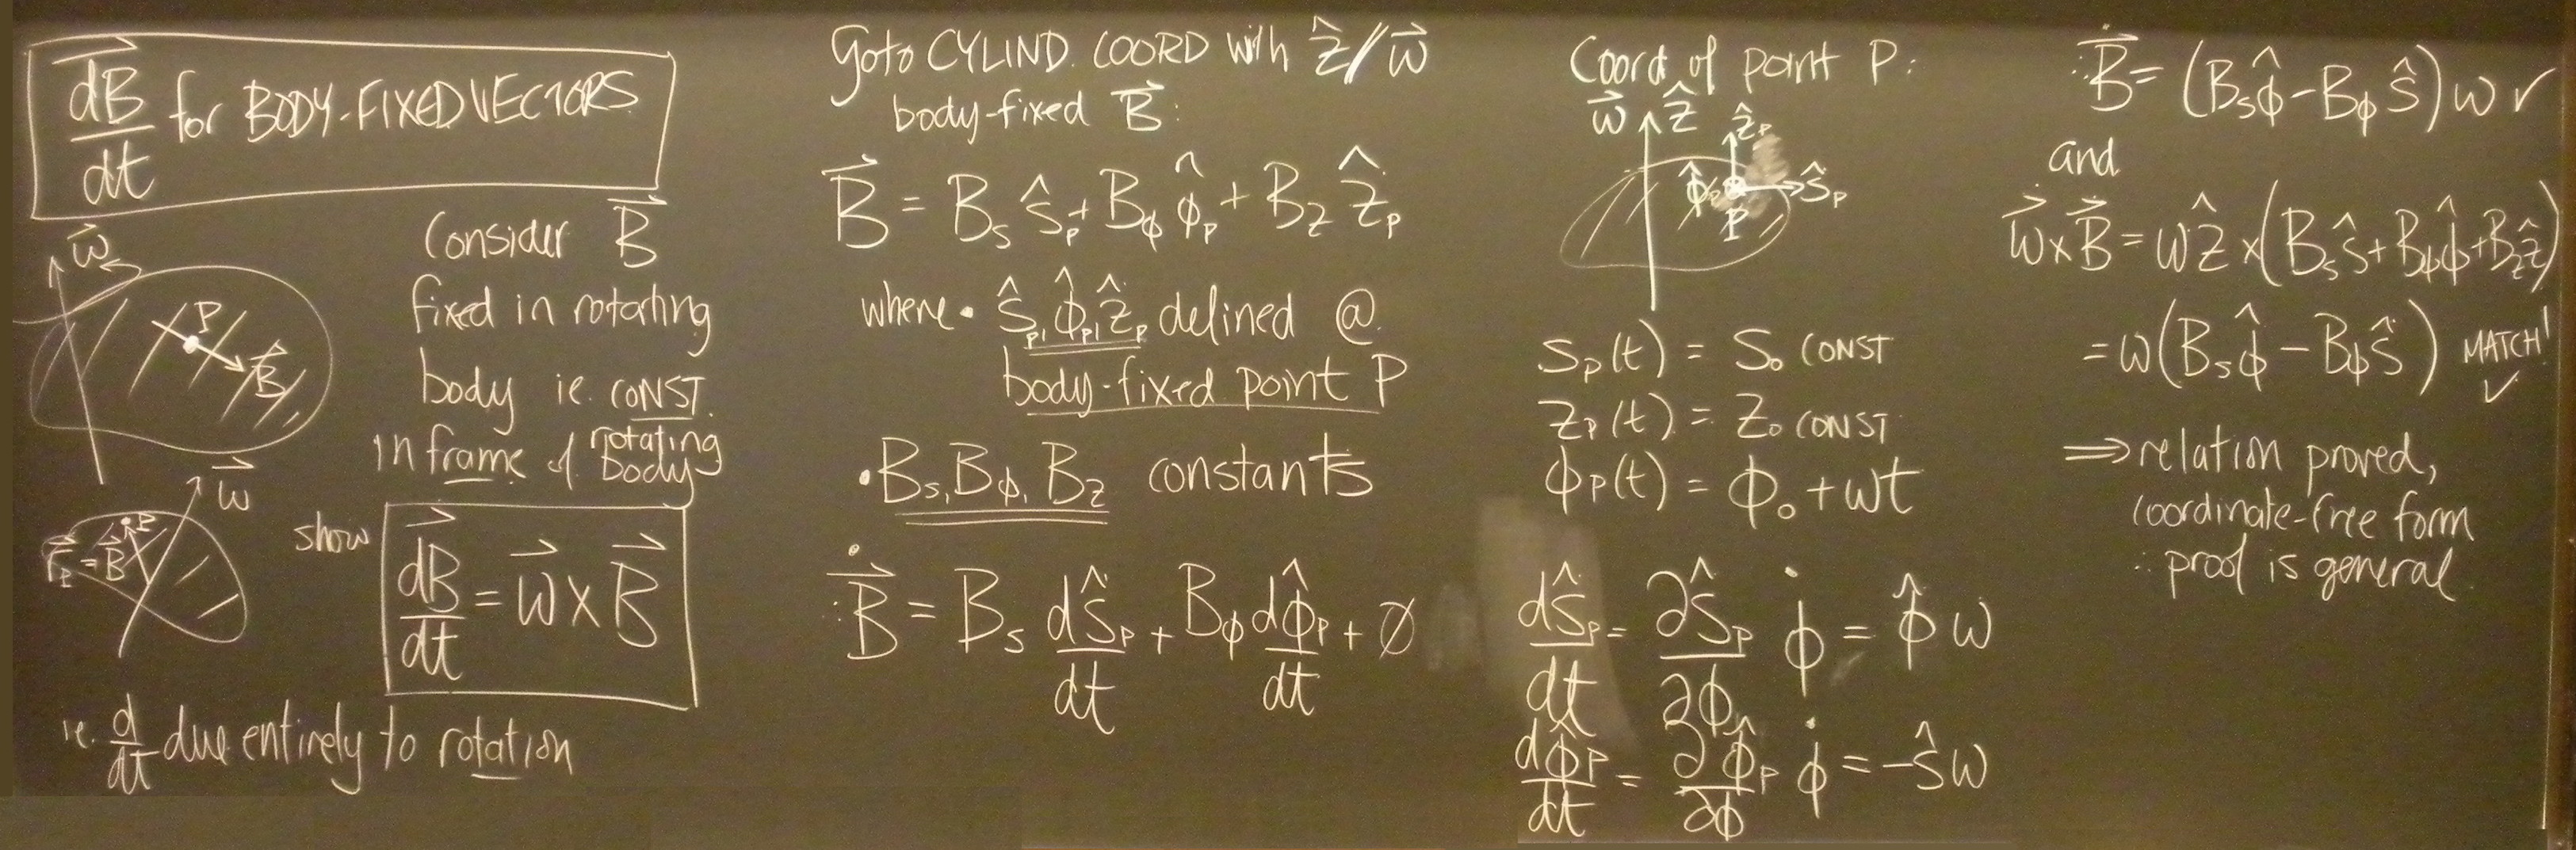 dB⃗/dt for BODY-FIXED VECTORS
Consider B⃗
fixed in rotating
body ie. CONST.
in frame of rotating body
ω⃗
P
B⃗
ω⃗
P
r⃗_P = B⃗
show
dB⃗/dt = ω⃗ × B⃗
ie. d/dt due entirely to rotation
Go to CYLIND. COORD with ẑ // ω⃗
body-fixed B⃗:
B⃗ = B_s ŝ_p + B_ϕ ϕ̂_p + B_z ẑ_p
where • ŝ_p, ϕ̂_p, ẑ_p defined @
body-fixed point P
• B_s, B_ϕ, B_z constants
∴ B⃗̇ = B_s dŝ_p/dt + B_ϕ dϕ̂_p/dt + 0
Coord. of point P:
ω⃗ ẑ ẑ_p
ϕ̂_p ŝ_p
P
S_p(t) = S_0 CONST
Z_p(t) = Z_0 CONST
ϕ_p(t) = ϕ_0 + ωt
dŝ_p/dt = ∂ŝ_p/∂ϕ ϕ̇ = ϕ̂ ω
dϕ̂_p/dt = ∂ϕ̂_p/∂ϕ ϕ̇ = -ŝ ω
∴ B⃗̇ = (B_s ϕ̂ - B_ϕ ŝ) ω ✓
and
ω⃗ × B⃗ = ω ẑ × (B_s ŝ + B_ϕ ϕ̂ + B_z ẑ)
= ω (B_s ϕ̂ - B_ϕ ŝ) MATCH! ✓
⇒ relation proved,
coordinate-free form
∴ proof is general.